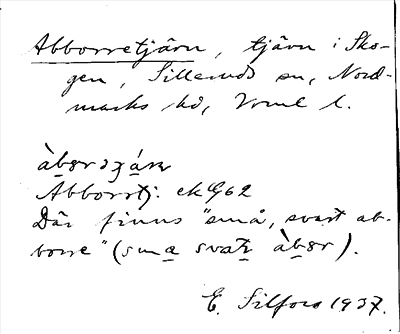 Abborretjärn, tjärn i Sko-
gen, Silleruds sn, Nord-
marks hd, Vrml l.
Abborrtj: ek G62
Där finns "små, svart ab-
borre" (
E. Silfors 1937.